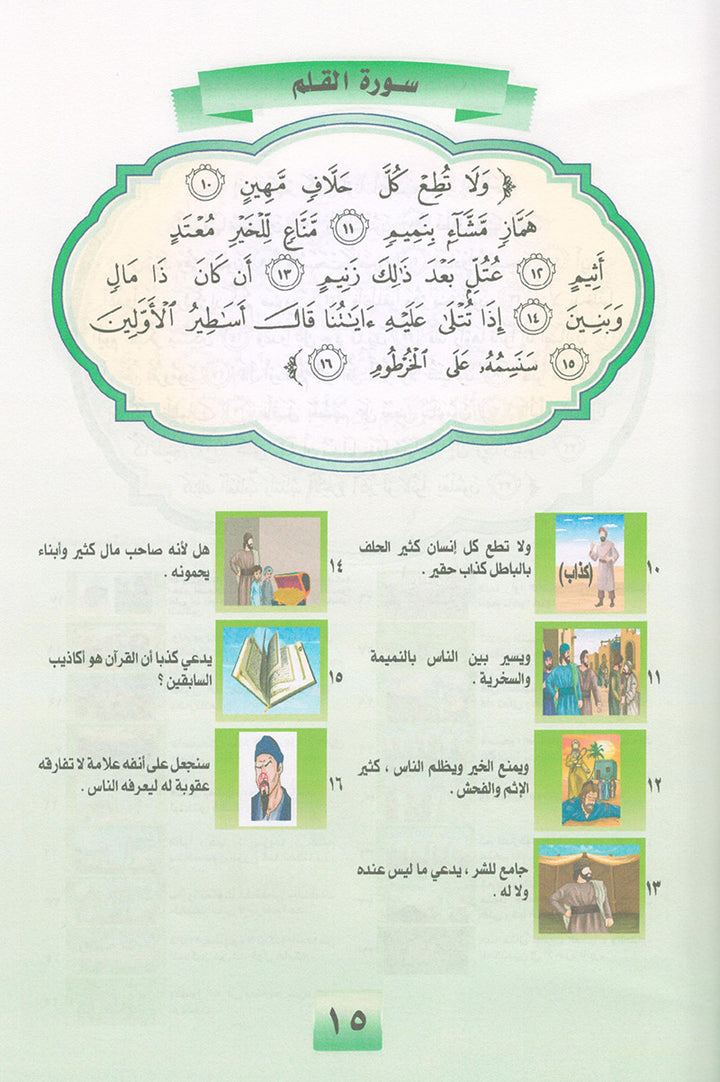 سورة القلم
﴿ وَلَا تُطِعْ كُلَّ حَلَّافٍ مَّهِينٍ ١٠
هَمَّازٍ مَّشَّآءٍ بِنَمِيمٍ ١١ مَّنَّاعٍ لِّلْخَيْرِ مُعْتَدٍ
أَثِيمٍ ١٢ عُتُلٍّ بَعْدَ ذَٰلِكَ زَنِيمٍ ١٣ أَن كَانَ ذَا مَالٍ
وَبَنِينَ ١٤ إِذَا تُتْلَىٰ عَلَيْهِ ءَايَٰتُنَا قَالَ أَسَٰطِيرُ ٱلْأَوَّلِينَ
١٥ سَنَسِمُهُۥ عَلَى ٱلْخُرْطُومِ ١٦ ﴾
١٠
(كذاب)
ولا تطع كل إنسان كثير الحلف
بالباطل كذاب حقير .
١١
ويسير بين الناس بالنميمة
والسخرية .
١٢
ويمنع الخير ويظلم الناس ، كثير
الإثم والفحش .
١٣
جامع للشر ، يدعي ما ليس عنده
ولا له .
١٤
هل لأنه صاحب مال كثير وأبناء
يحمونه .
١٥
يدعي كذبا أن القرآن هو أكاذيب
السابقين ؟
١٦
سنجعل على أنفه علامة لا تفارقه
عقوبة له ليعرفه الناس .
١٥